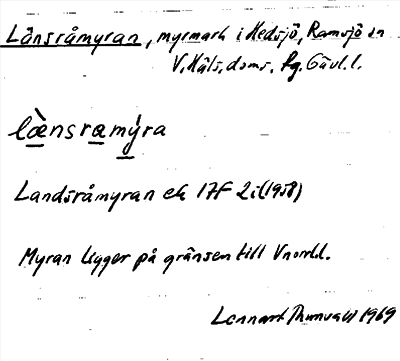 Länsråmyran, myrmark i Hedsjö, Ramsjö sn
V. Häls. doms. fg. Gävl. l.
læ̀nsramýra
Landsråmyran ek 17F 2i (1958)
Myran ligger på gränsen till Vnorrl.
Lennart 1969